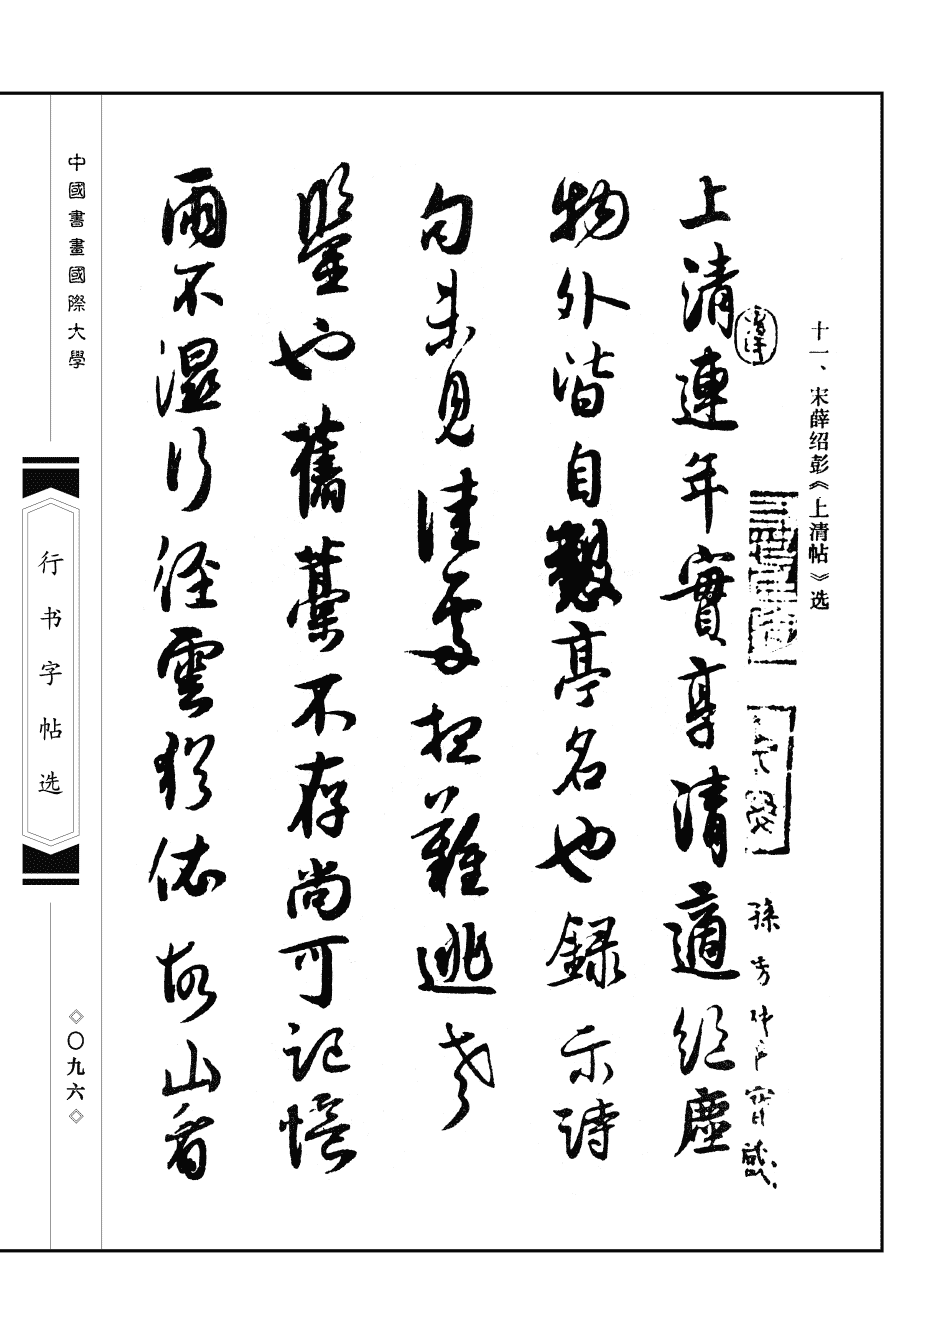 十一、宋薛绍彭《上清帖》选
孫
寶
上清連年實享清適經塵
物外皆自懃亭名也録示詩
句未見佳處拒難逃
鑒也舊藁不存尚可記憶
雨不濕行徑雲猶依故山看
中國書畫國際大學
行书字帖选
◇〇九六◇